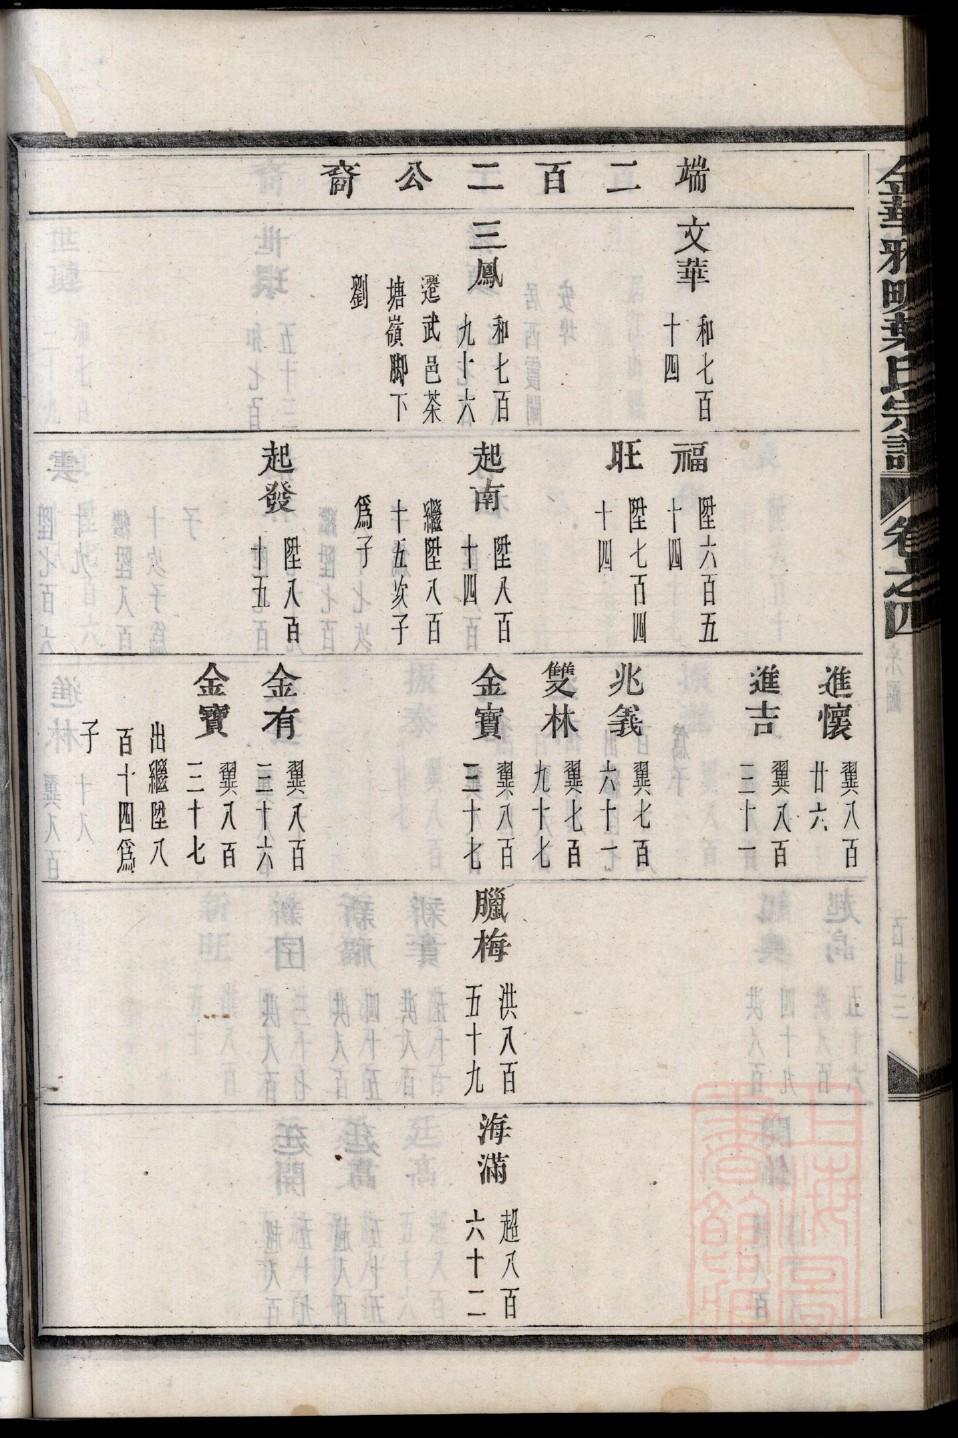 金華雅畈葉氏宗譜
卷之四
端二百二公裔
文華
和七百
十四
三鳳
和七百
九十六
遷武邑茶
塘嶺脚下
劉
福
陞六百五
十四
旺
陞七百四
十四
起南
陞八百
十四
繼陞八百
十五次子
爲子
起發
陞八百
十五
進懷
翼八百
廿六
進吉
翼八百
三十一
兆義
翼七百
六十一
雙林
翼七百
九十七
金寶
翼八百
三十七
金有
翼八百
三十六
金寶
翼八百
三十七
出繼陞八
百十四爲
子
臘梅
洪八百
五十九
海滿
超八百
六十二
上海圖
書館藏